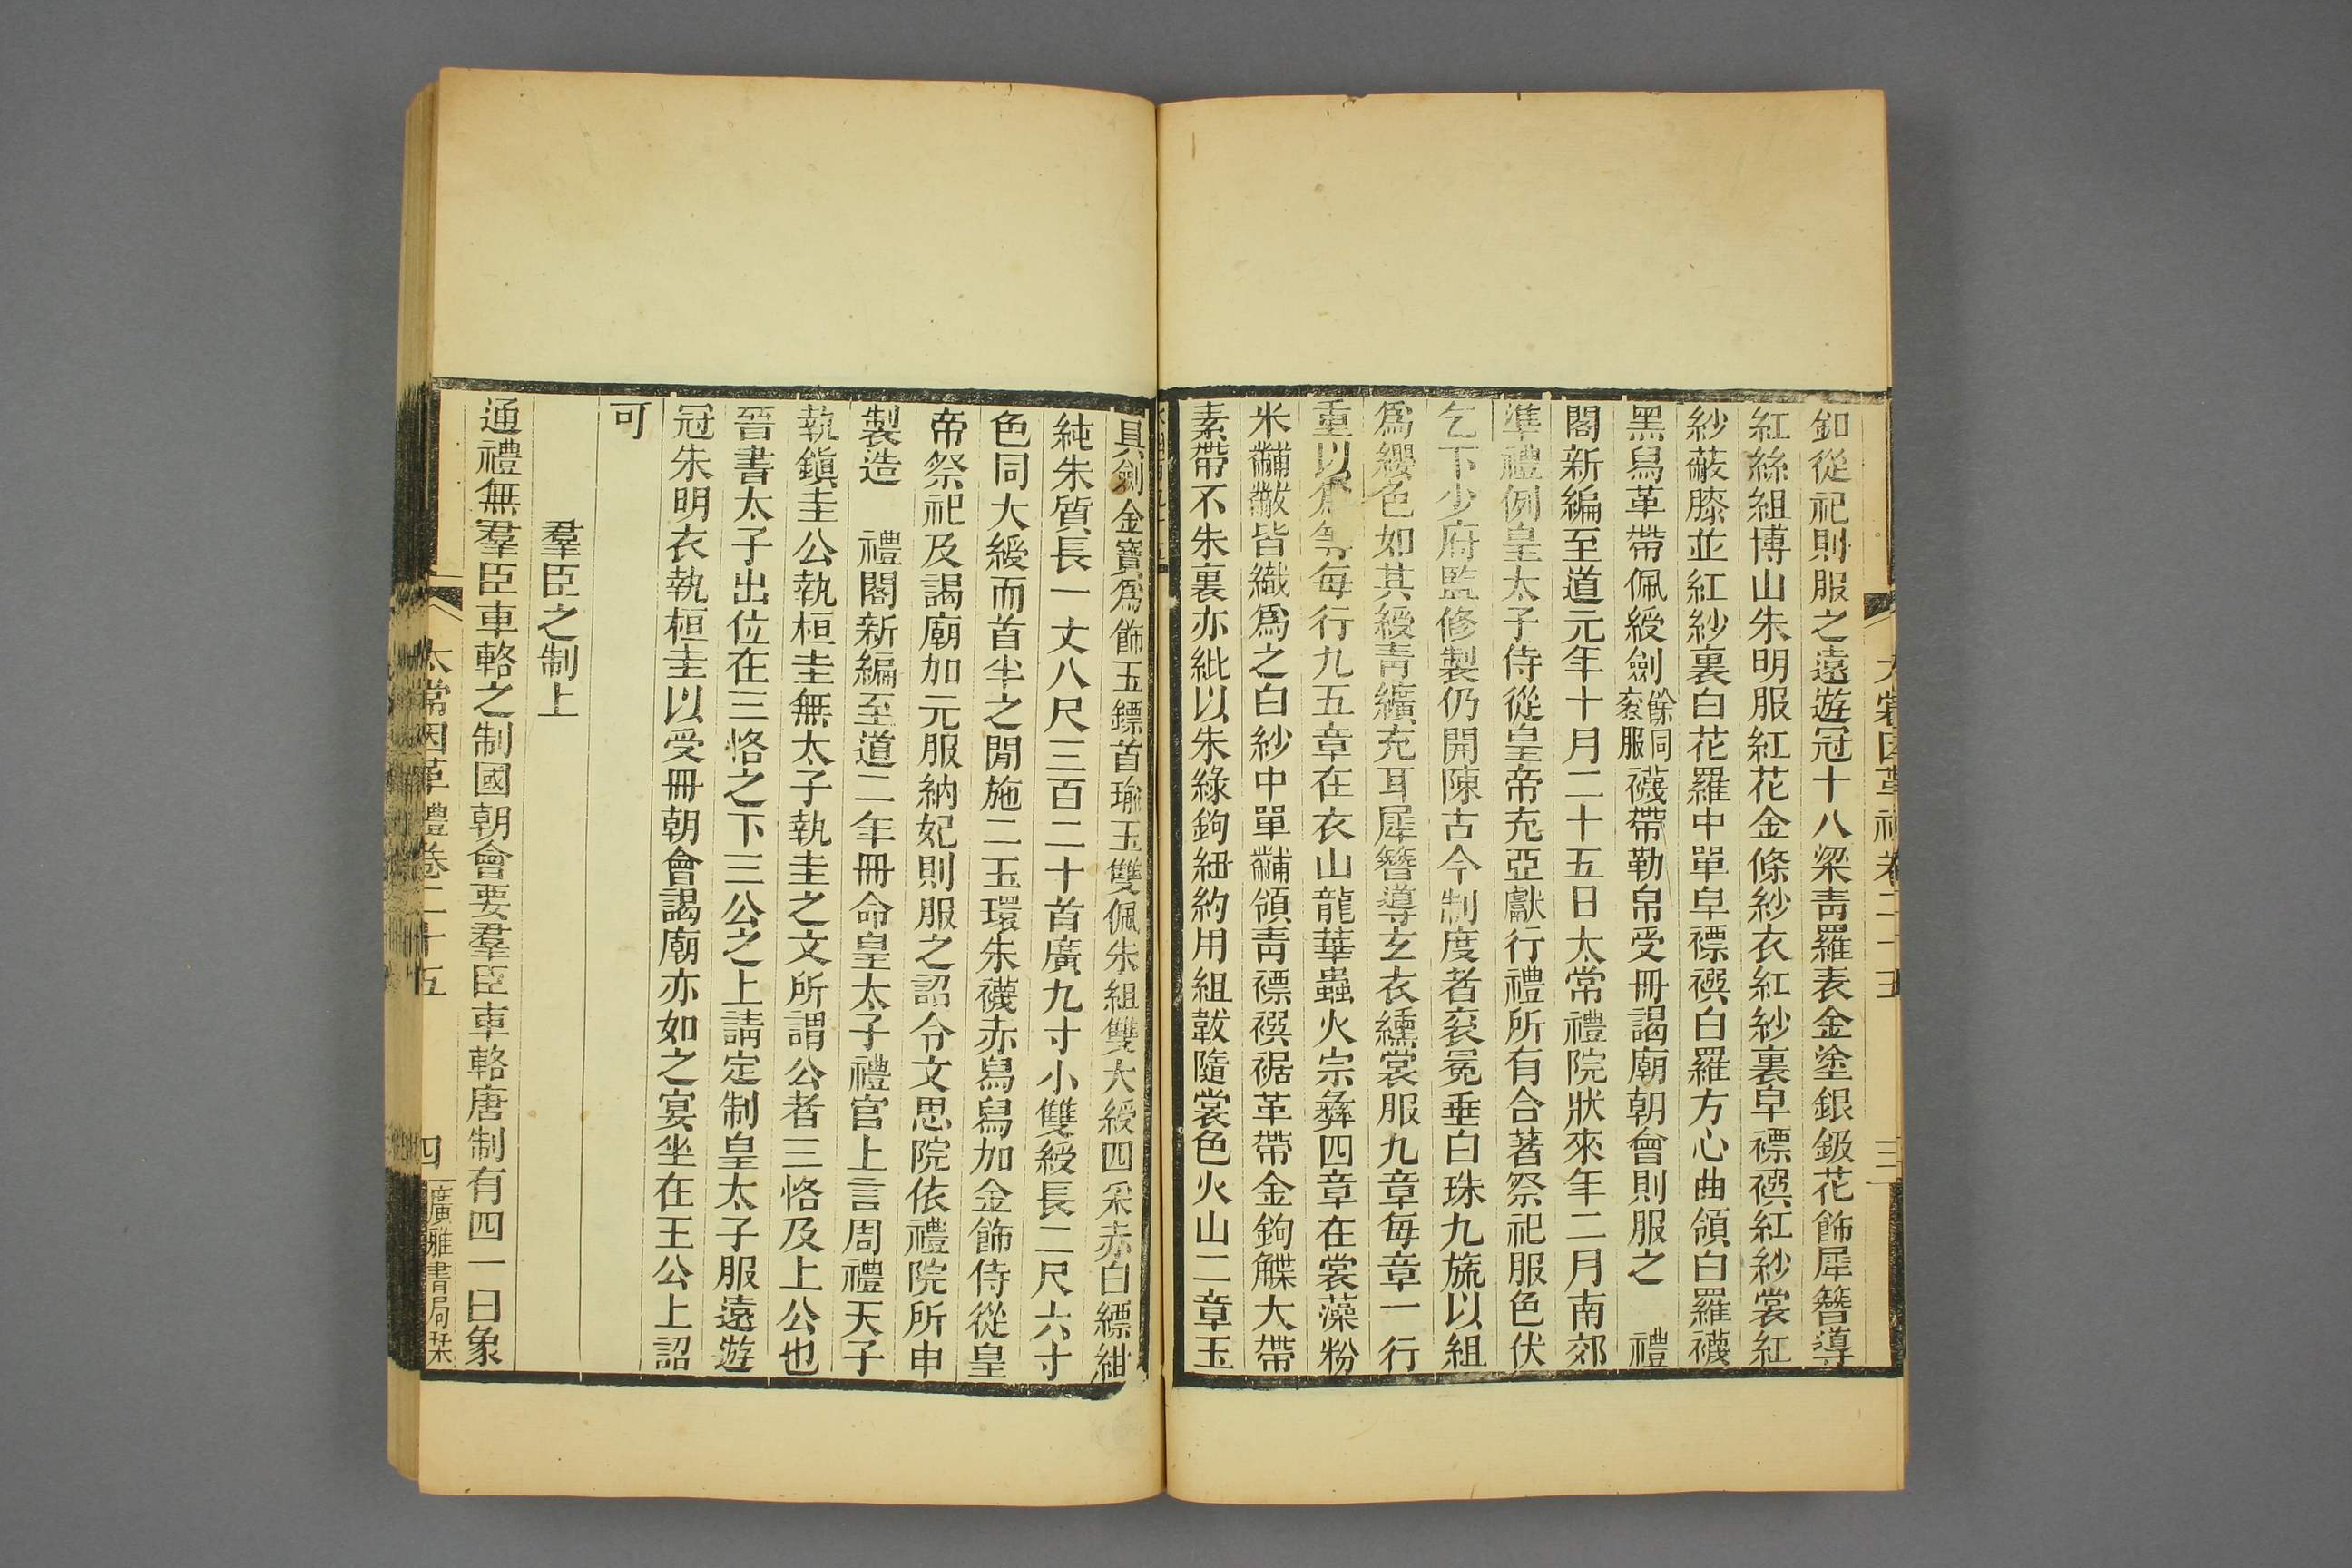 釦從祀則服之遠遊冠十八梁靑羅表金塗銀鈒花飾犀簪導
紅絲組博山朱明服紅花金條紗衣紅紗裏皁褾襈紅紗裳紅
紗蔽膝並紅紗裏白花羅中單皁褾襈白羅方心曲領白羅襪
黑舄革帶佩綬劍餘同袞服襪帶勒帛受冊謁廟朝會則服之　禮
閣新編至道元年十月二十五日太常禮院狀來年二月南郊
準禮例皇太子侍從皇帝充亞獻行禮所有合著祭祀服色伏
乞下少府監修製仍開陳古今制度者袞冕垂白珠九旒以組
爲纓色如其綬靑纊充耳犀簪導玄衣纁裳服九章每章一行
重以爲等每行九五章在衣山龍華蟲火宗彝四章在裳藻粉
米黼黻皆織爲之白紗中單黼領靑褾襈裾革帶金鉤䚢大帶
素帶不朱裏亦紕以朱綠鉤紐約用組韍隨裳色火山二章玉
具劍金寶爲飾玉鏢首瑜玉雙佩朱組雙大綬四采赤白縹紺
純朱質長一丈八尺三百二十首廣九寸小雙綬長二尺六寸
色同大綬而首半之閒施二玉環朱襪赤舄舄加金飾侍從皇
帝祭祀及謁廟加元服納妃則服之詔令文思院依禮院所申
製造　禮閣新編至道二年冊命皇太子禮官上言周禮天子
執鎭圭公執桓圭無太子執圭之文所謂公者三恪及上公也
晉書太子出位在三恪之下三公之上請定制皇太子服遠遊
冠朱明衣執桓圭以受冊朝會謁廟亦如之宴坐在王公上詔
可
羣臣之制上
通禮無羣臣車輅之制國朝會要羣臣車輅唐制有四一曰象
太常因革禮卷二十五
四
廣雅書局栞